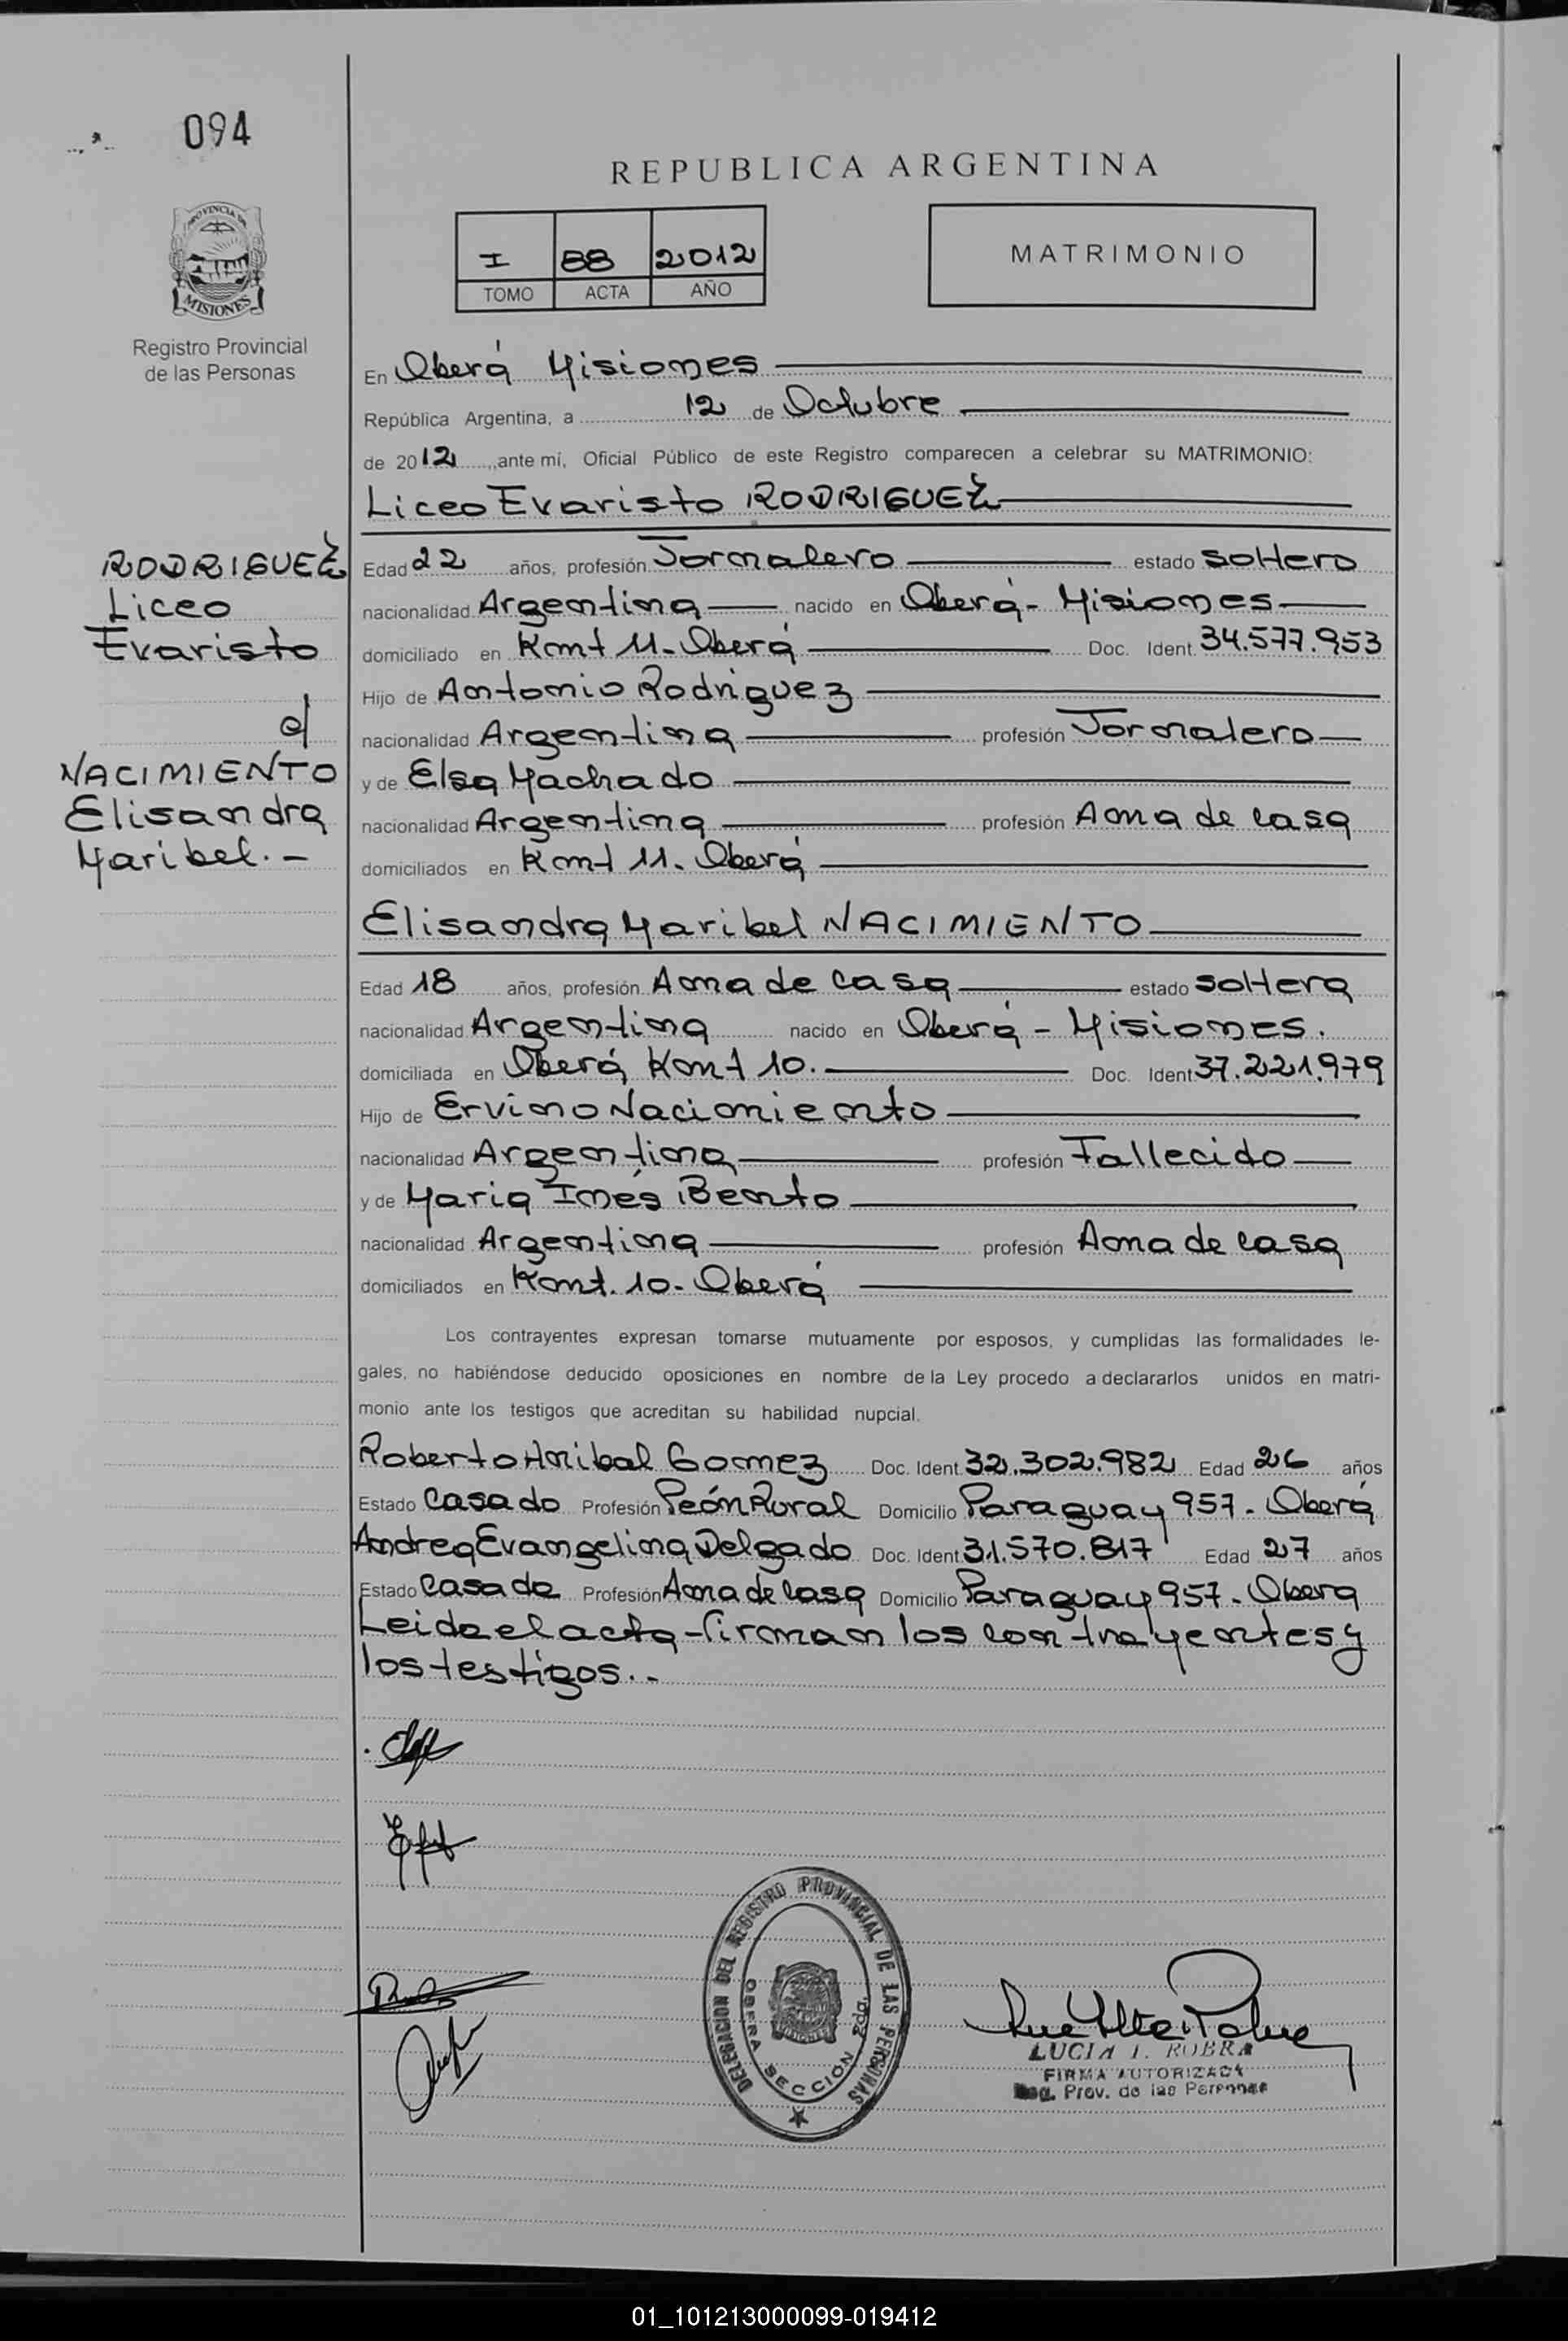 094
REPUBLICA ARGENTINA
I 88 2012
TOMO ACTA AÑO
MATRIMONIO
PROVINCIA DE
MISIONES
Registro Provincial
de las Personas
En Oberá Misiones
República Argentina, a 12 de Octubre
de 2012, ante mí, Oficial Público de este Registro comparecen a celebrar su MATRIMONIO:
Liceo Evaristo RODRIGUEZ
RODRIGUEZ
Liceo
Evaristo
c/
NACIMIENTO
Elisandra
Maribel.-
Edad 22 años, profesión Jornalero estado soltero
nacionalidad Argentina nacido en Oberá- Misiones
domiciliado en Kmt 11- Oberá Doc. Ident. 34.577.953
Hijo de Antonio Rodriguez
nacionalidad Argentina profesión Jornalero
y de Elsa Machado
nacionalidad Argentina profesión Ama de casa
domiciliados en Kmt 11- Oberá
Elisandra Maribel NACIMIENTO
Edad 18 años, profesión Ama de casa estado soltera
nacionalidad Argentina nacido en Oberá - Misiones.
domiciliada en Oberá Kmt 10. Doc. Ident 37.221.979
Hijo de Ervino Nacimiento
nacionalidad Argentina profesión Fallecido
y de Maria Inés Bento
nacionalidad Argentina profesión Ama de casa
domiciliados en Kmt. 10- Oberá
Los contrayentes expresan tomarse mutuamente por esposos, y cumplidas las formalidades le-
gales, no habiéndose deducido oposiciones en nombre de la Ley procedo a declararlos unidos en matri-
monio ante los testigos que acreditan su habilidad nupcial.
Roberto Anibal Gomez Doc. Ident. 32.302.982 Edad 26 años
Estado Casado Profesión Peón Rural Domicilio Paraguay 957- Oberá
Andrea Evangelina Delgado Doc. Ident. 31.570.817 Edad 27 años
Estado Casada Profesión Ama de casa Domicilio Paraguay 957- Obera
Leida el acta-firman los contrayentes y
los testigos.-
DELEGACION DEL REGISTRO PROVINCIAL DE LAS PERSONAS
OBERA SECCION 2da.
LUCIA I. ROBRA
FIRMA AUTORIZADA
Reg. Prov. de las Personas
01_101213000099-019412